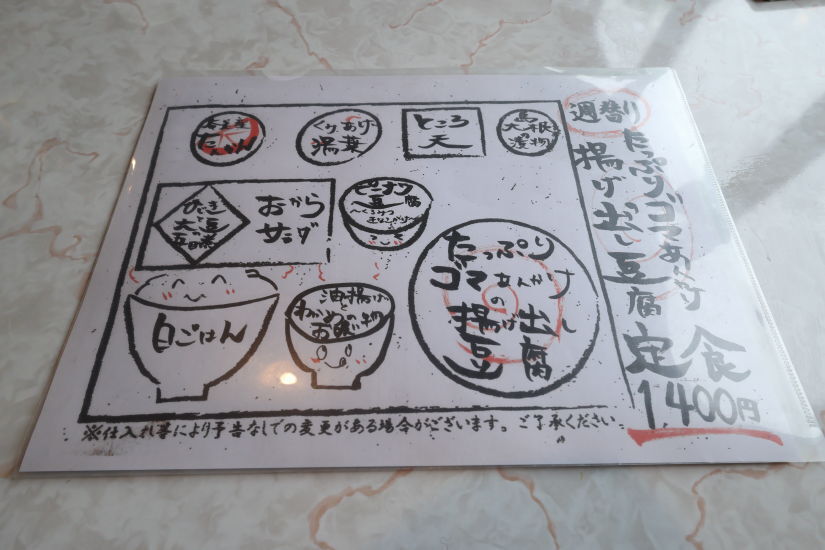 週替り
たっぷりゴマあんかけ
揚げ出し豆腐
定食
1,400円
くみあげ
湯葉
ところ
天
島根
大根の
漬物
ひじき
大豆
五目煮
おから
サラダ
ピーナツ
豆腐
たっぷり
ゴマあんかけ
の
揚げ出し
豆腐
白ごはん
油揚げと
わかめの
お吸い物
※仕入れ等により予告なしでの変更がある場合がございます。ご了承ください。